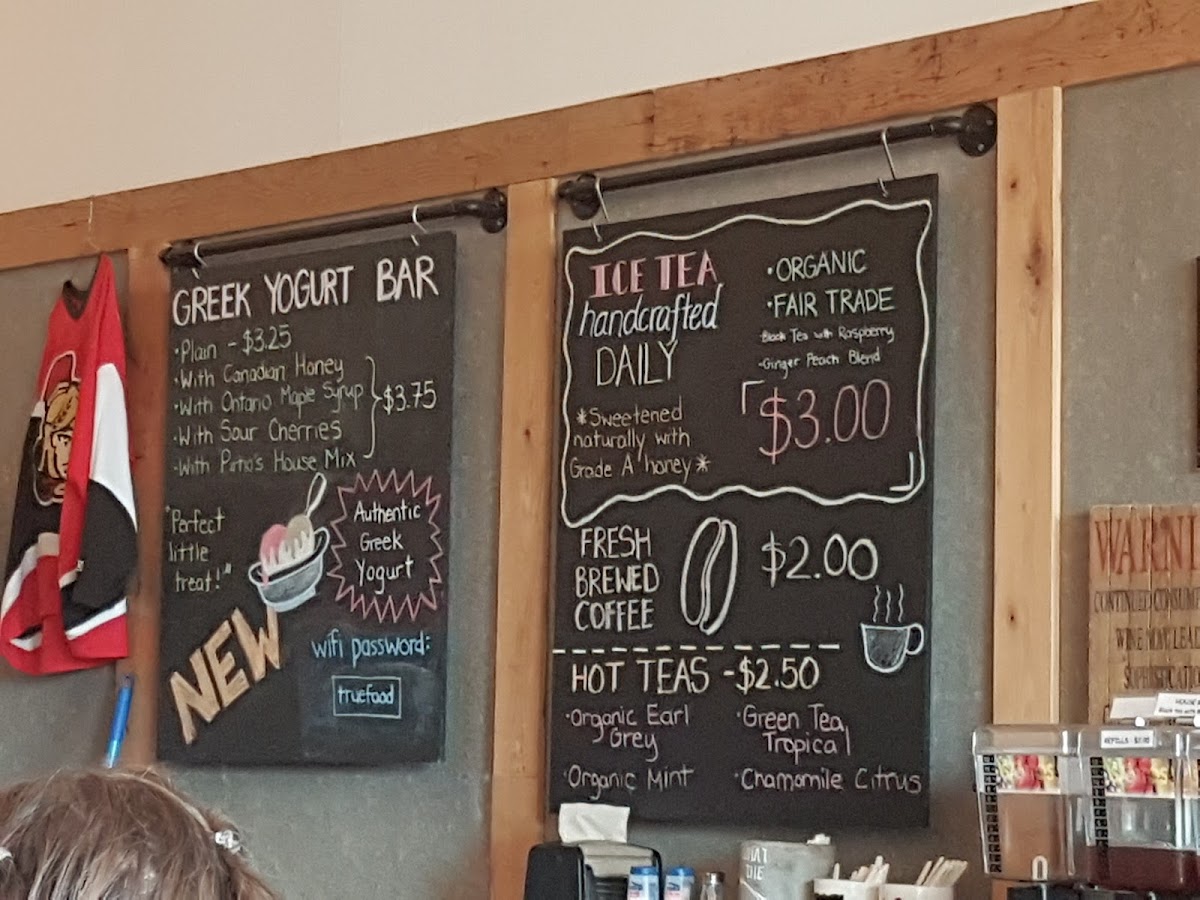 GREEK YOGURT BAR
•Plain - $3.25
•With Canadian Honey
•With Ontario Maple Syrup
•With Sour Cherries
•With Pirho's House Mix
$3.75
"Perfect
little
treat!"
Authentic
Greek
Yogurt
NEW
wifi password:
truefood
ICE TEA
handcrafted
DAILY
*Sweetened
naturally with
Grade A honey*
•ORGANIC
•FAIR TRADE
-Black Tea with Raspberry
-Ginger Peach Blend
$3.00
FRESH
BREWED
COFFEE
$2.00
HOT TEAS -$2.50
•Organic Earl
Grey
•Organic Mint
•Green Tea
Tropical
•Chamomile Citrus
WARNI
CONTINUED CONSUM
WINE MAY LEAD
SOPHISTICATIO
REFILLS